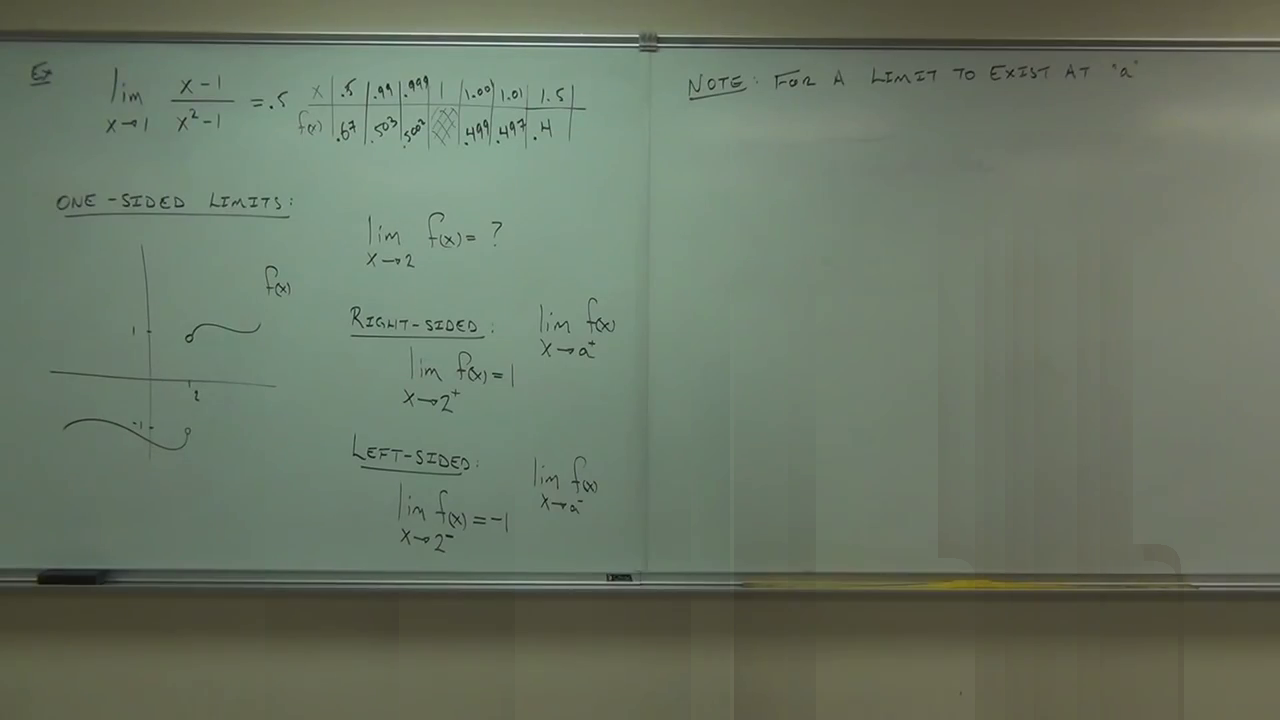 Ex
lim x→1 x-1/x²-1 = .5
x | .5 | .99 | .999 | 1 | 1.001 | 1.01 | 1.5
f(x) | .67 | .503 | .5002 | | .499 | .497 | .4
ONE-SIDED LIMITS:
lim x→2 f(x) = ?
f(x)
1
2
-1
RIGHT-SIDED: lim x→a⁺ f(x)
lim x→2⁺ f(x) = 1
LEFT-SIDED: lim x→a⁻ f(x)
lim x→2⁻ f(x) = -1
NOTE: FOR A LIMIT TO EXIST AT "a"